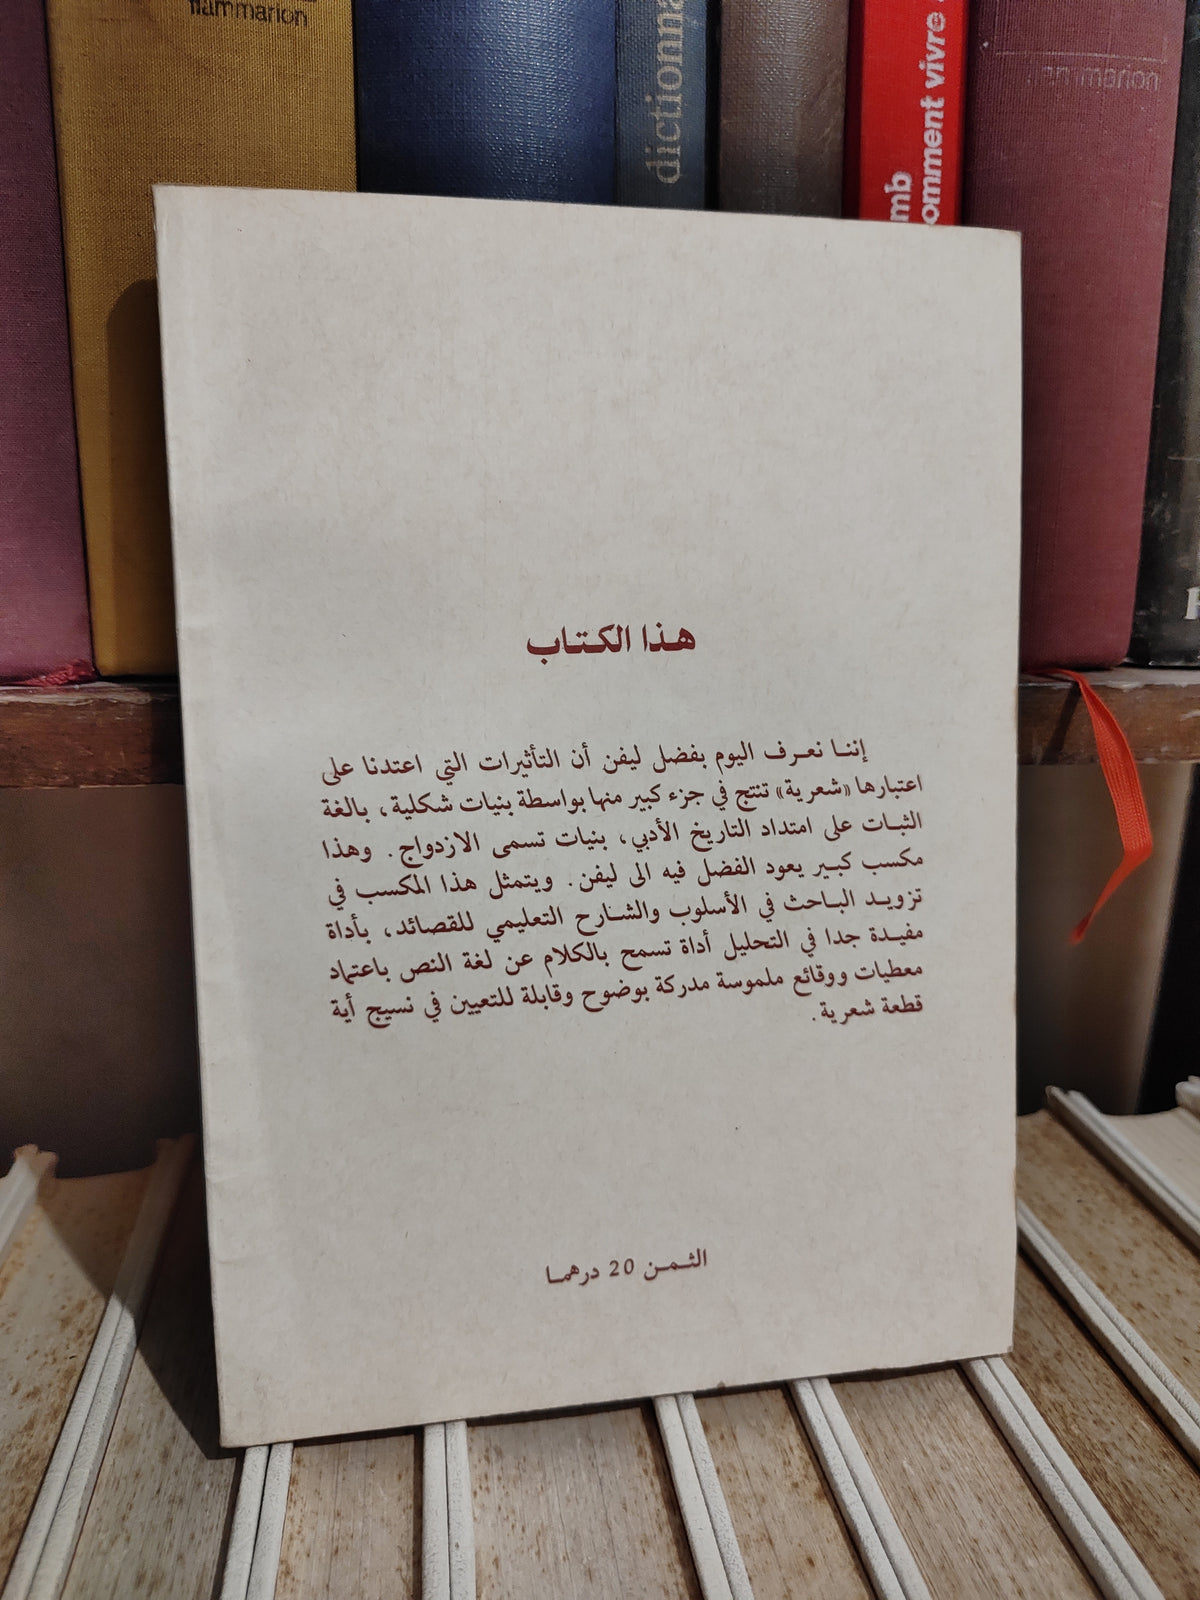 flammarion
dictionna
mb
omment vivre
flammarion
هذا الكتاب
إننا نعرف اليوم بفضل ليفن أن التأثيرات التي اعتدنا على
اعتبارها «شعرية» تنتج في جزء كبير منها بواسطة بنيات شكلية، بالغة
الثبات على امتداد التاريخ الأدبي، بنيات تسمى الازدواج. وهذا
مكسب كبير يعود الفضل فيه الى ليفن. ويتمثل هذا المكسب في
تزويد الباحث في الأسلوب والشارح التعليمي للقصائد، بأداة
مفيدة جدا في التحليل أداة تسمح بالكلام عن لغة النص باعتماد
معطيات ووقائع ملموسة مدركة بوضوح وقابلة للتعيين في نسيج أية
قطعة شعرية.
الثمن 20 درهما